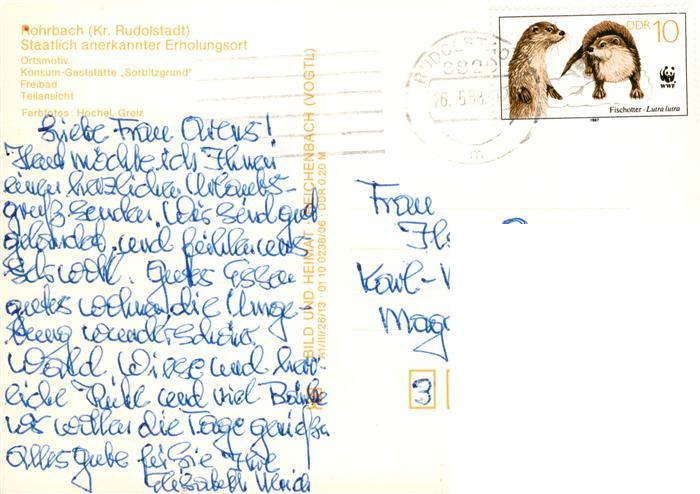 Rohrbach (Kr. Rudolstadt)
Staatlich anerkannter Erholungsort
Ortsmotiv
Konsum-Gaststätte „Sorbitzgrund"
Freibad
Teilansicht
Farbfotos: Hochel, Greiz
Liebe Frau
Heut möchte ich Ihnen
einen herzlichen Urlaubs-
gruß senden. Wir sind gut
gelandet und fühlen uns
wohl. Gutes Essen
gutes wohnen die Umge-
bung wunderschön
Wald Wiese und herr-
liche Ruhe und viel Bänke
wir wollen die Tage genießen
alles gute für Sie Ihre
Elisabeth
BILD UND HEIMAT REICHENBACH (VOGTL)
A1/III/26/13 01 10 0238/06 DDR 0,20 M
RUDOLSTADT
6820
26.5.88
m
DDR 10
WWF
Fischotter - Lutra lutra
1987
Frau
Karl-
Mag
3